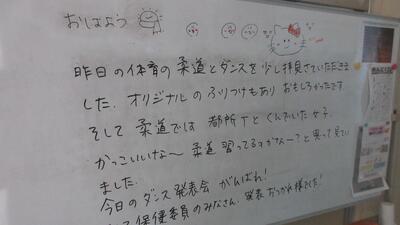 おはよう
昨日の体育の柔道とダンスを少し拝見させていただきま
した。オリジナルのふりつけもあり おもしろかったです
そして 柔道では 都所Tとくんでいた女子
かっこいいな〜 柔道 習ってるすかな〜?と思って見てい
ました。
今日のダンス発表会 がんばれ!
保健委員のみなさん、発表 おつかれ様でした!